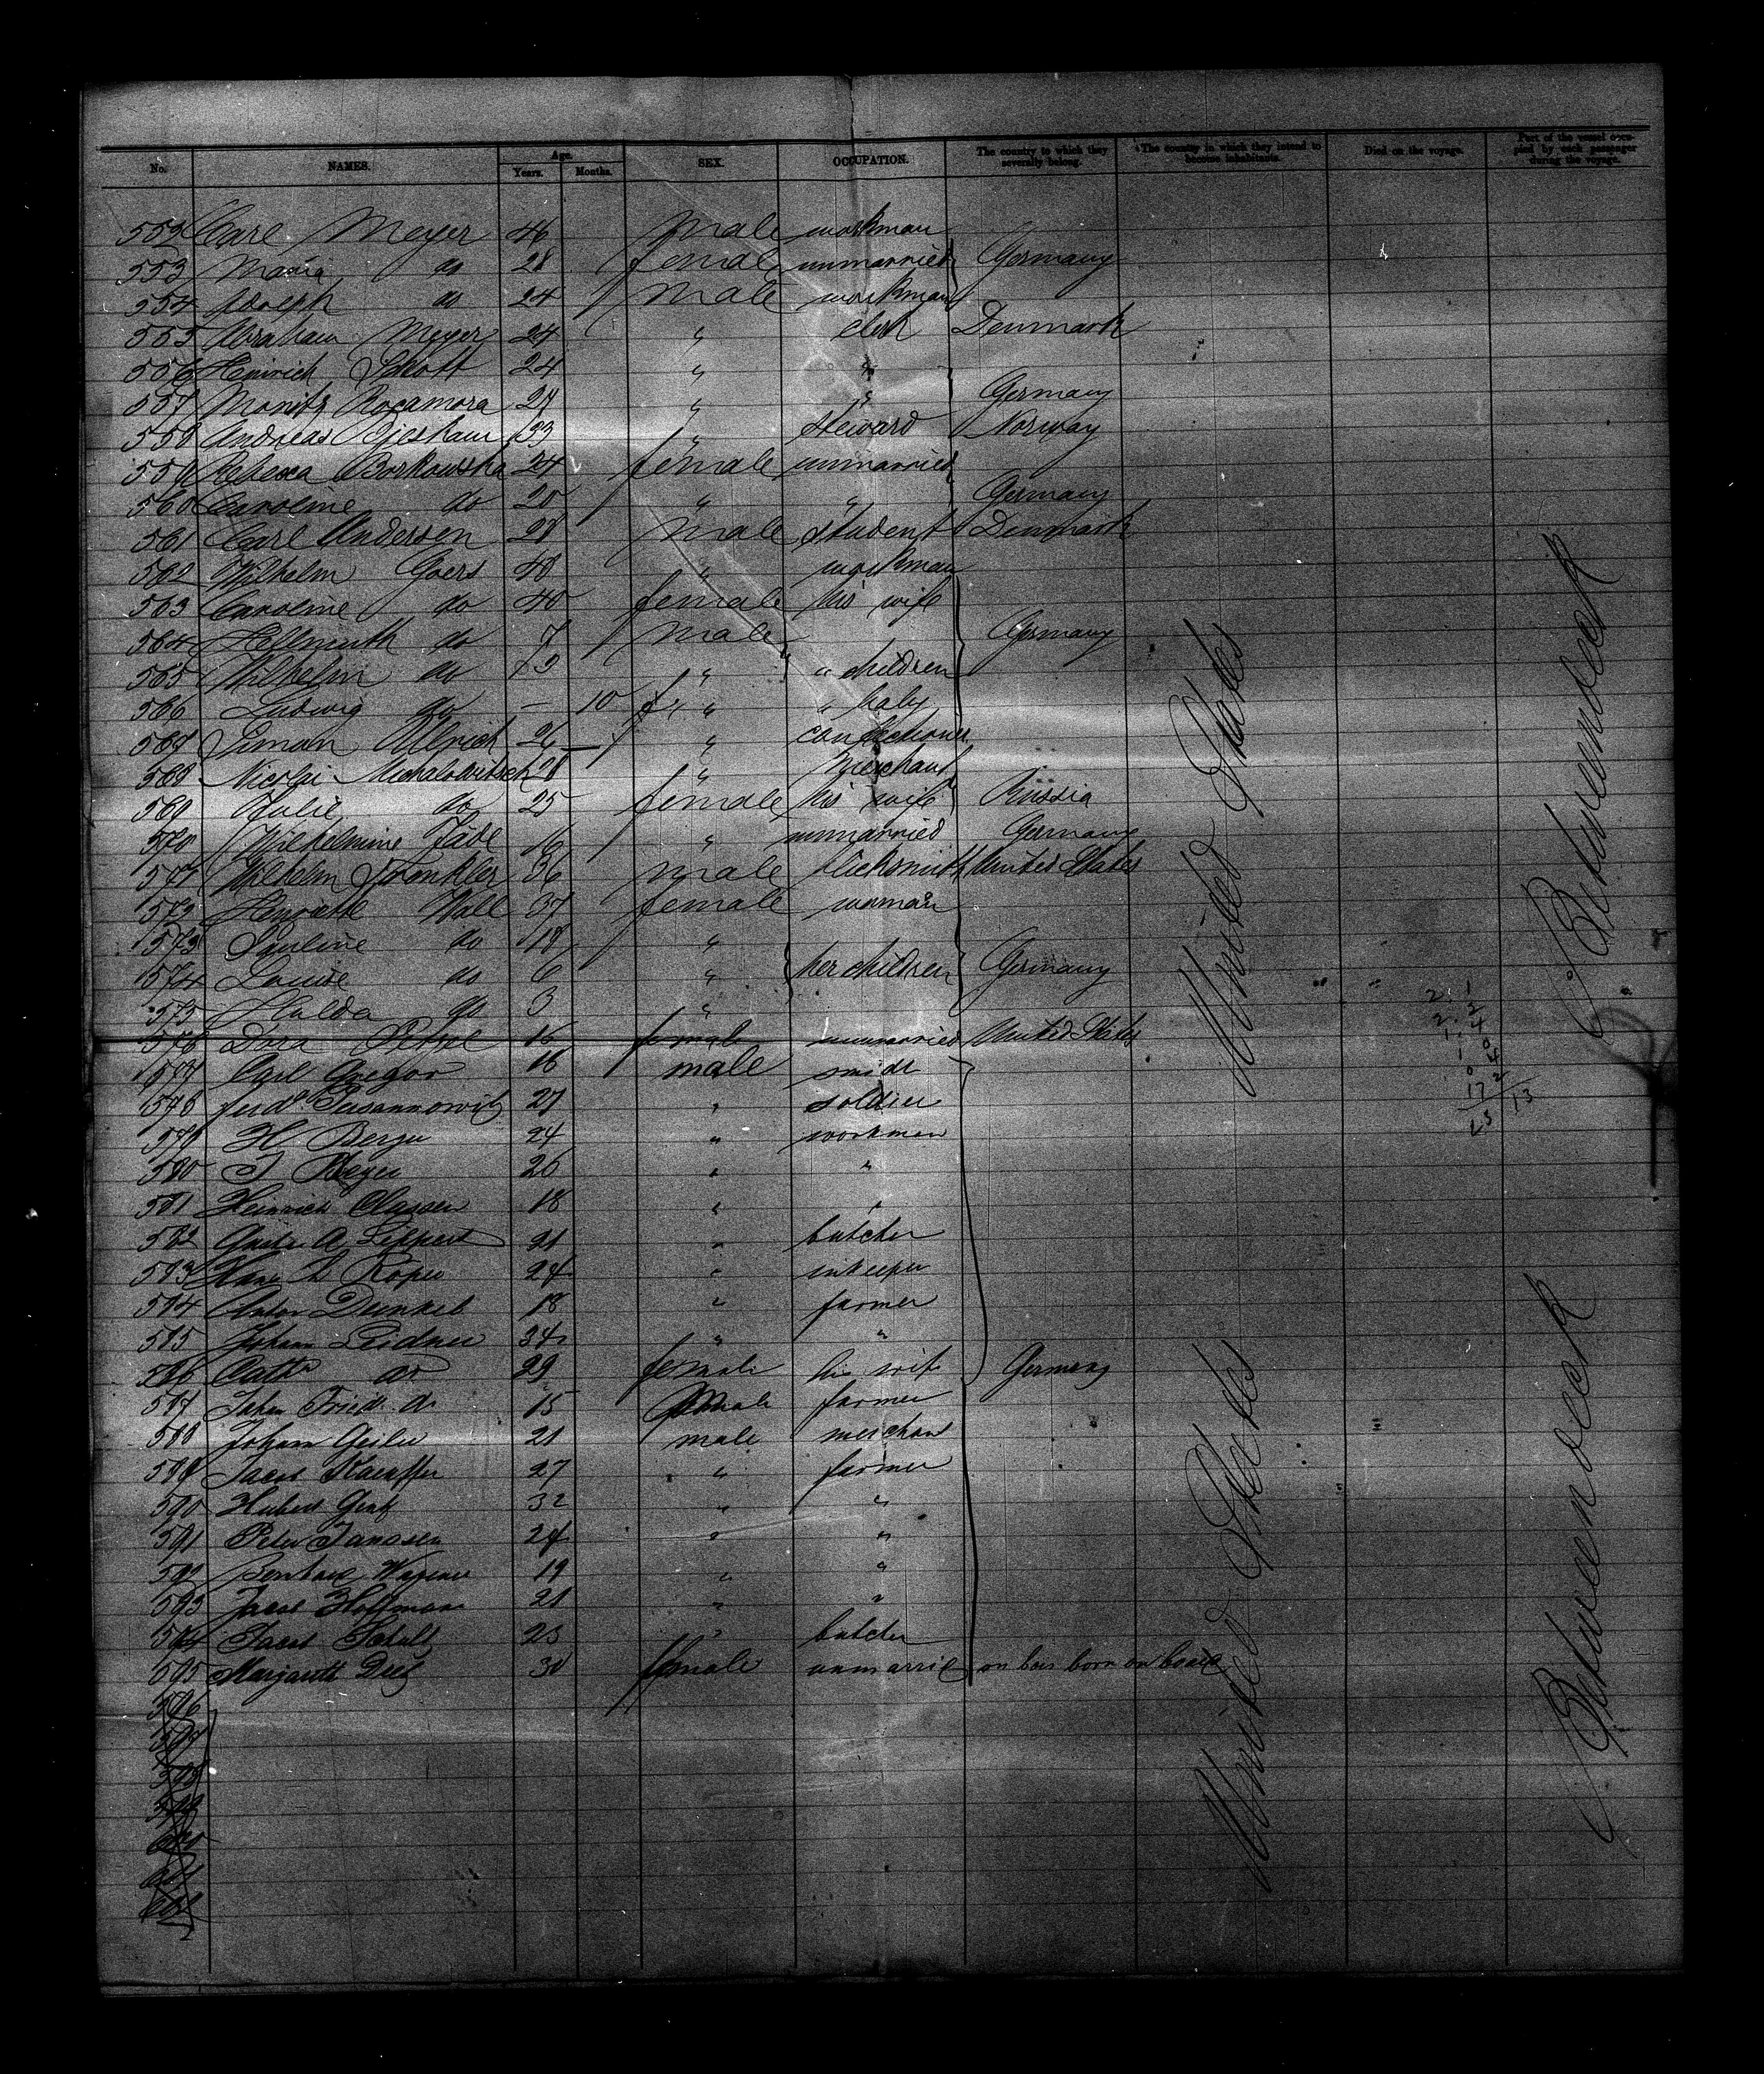 No. NAMES. Age. Years. Months. SEX. OCCUPATION. The country to which they severally belong. The country in which they intend to become inhabitants. Died on the voyage. Part of the vessel occupied by each passenger during the voyage.
552 Carl Meyer 46 male workman
553 Maria do 28 female unmarried Germany
554 Adolph do 24 male workman
555 Abraham Meyer 24 " clerk Denmark
556 Heinrich Schott 24 " "
557 Moritz Rocamora 24 " " Germany
558 Andreas 33 " steward Norway
559 Rebecca Borkowska 24 female unmarried
560 Caroline do 20 " " Germany
561 Carl Andersen 28 male student Denmark
562 Wilhelm Goers 48 " workman
563 Caroline do 40 female his wife
564 Hellmuth do 7 male Germany
565 Wilhelm do " " children
566 Ludwig do – 10 " " baby
567 Simon Ullrich 26 " confectioner
568 Nicolai Michalowitsch 28 " Merchant
569 Julie do 25 female his wife Russia
570 Wilhelmine 16 " unmarried Germany
571 Wilhelm 36 male United States
572 Henriette Wall 37 female woman
573 Pauline do 18 "
574 Louise do 6 " her children Germany
575 Hulda do 3 "
576 Dora 16 female unmarried United States
577 Carl Gregor 18 male smidt
578 Ferd. 27 " soldier
579 H. 24 " workmen
580 J 26 " "
581 Heinrich Classen 18 " "
582 A 21 " butcher
583 Hans 24 " inkeeper
584 Anton 18 " farmer
585 Johann Leidner 34 " "
586 Cath do 29 female his wife Germany
587 Fried. do 15 male farmer
588 Johann 21 male merchant
589 Jacob 27 " farmer
590 Hubert 32 " "
591 Peter Janssen 24 " "
592 Bernhard 19 " "
593 Jacob Hoffmann 21 " "
594 Jacob 23 " butcher
595 Margareth 30 female unmarried born on board
596
597
598
599
600
601
602
United States
United States
Betweendeck
Betweendeck